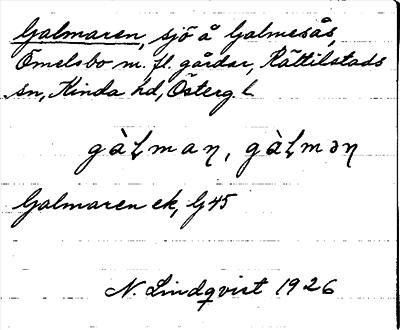 Galmaren, sjö å Galmesås,
Emelsbo m. fl. gårdar, Kättilstads
sn, Kinda hd, Österg. l.
gàɬmaɳ, gàɬməɳ
Galmaren ek, G 45
N. Lindqvist 1926